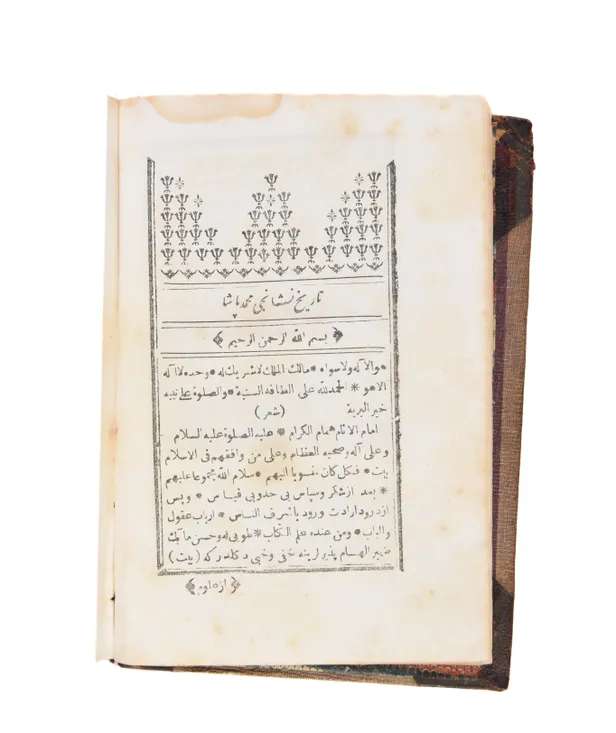 تاريخ نشانجى محمد پاشا
﴿ بسم الله الرحمن الرحيم ﴾
* والا آكه ولا سواه * مالك الملك لا شريك له * وحده لا اله
الا هو * الحمد لله على الطافه السنية * والصلوة على نبيه
خير البرية (شعر)
امام الانام همام الكرام * عليه الصلوة عليه السلام
وعلى آله وصحبه العظام وعلى من وافقهم فى الاسلام
بيت * فكل كان منسوبا اليهم * سلام الله مجموعا عليهم
* بعد از شكر وسپاس بى حد وبى قياس * وپس
از درود ارادت ورود يا شرف الناس * ارباب عقول
والباب * ومن عنده علم الكتاب * طوبى له وحسن مآبك
ضمير الهام پذيرلرينه خفى وخبى دكلدر كه (بيت)
﴿ ازه لوم ﴾